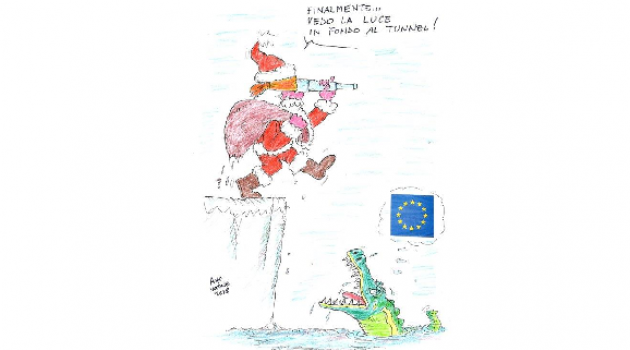 FINALMENTE...
VEDO LA LUCE
IN FONDO AL TUNNEL!